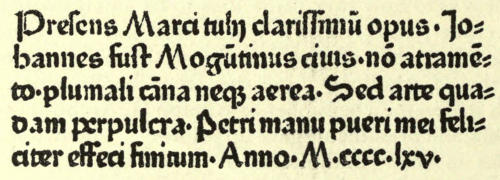 Presens Marci tulij clarissimū opus. Jo-
hannes fust Mogūtinus ciuis. nō atramē-
to. plumali cāna neqꝫ aerea. Sed arte qua-
dam perpulcra. Petri manu pueri mei feli-
citer effeci finitum. Anno. M. cccc. lxv.